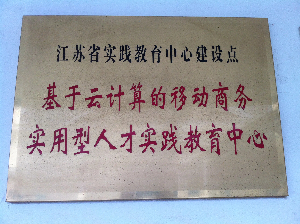 江苏省实践教育中心建设点
基于云计算的移动商务
实用型人才实践教育中心